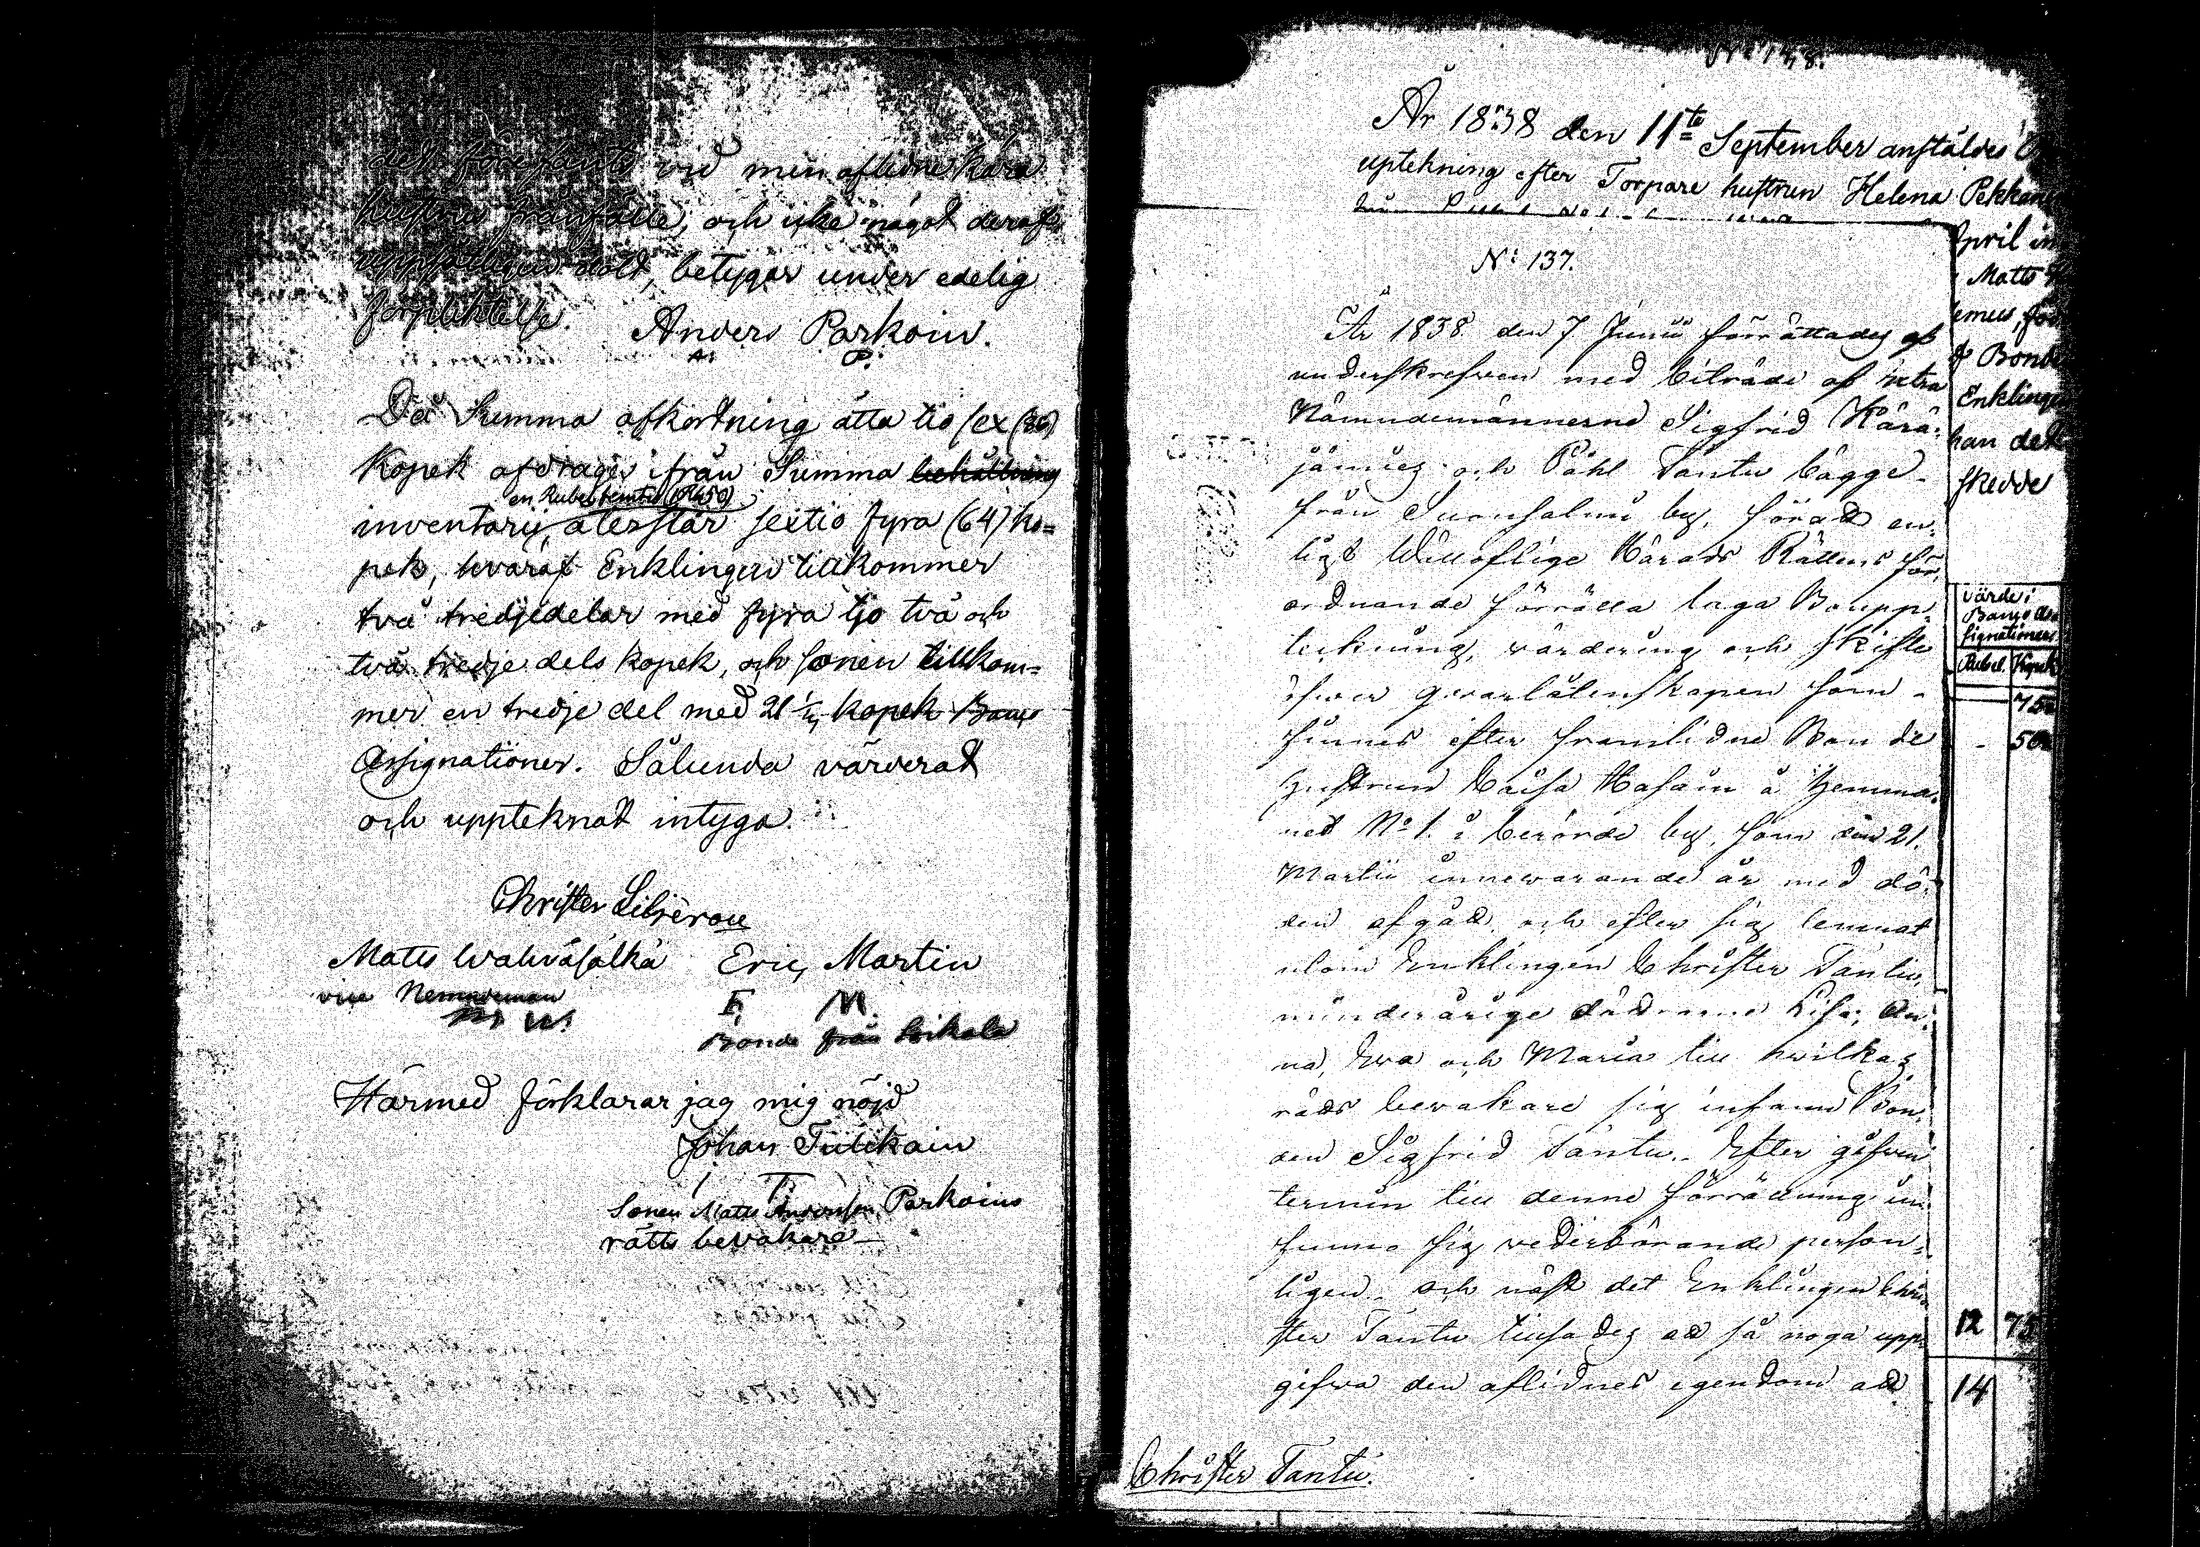 det förefants vid min aflidne kära
hustrus frånfälle, och icke något deraf
uppsåtligen dold, betygar under edelig
förpliktelse. Anders Parkoin.
A. P.
Då Summa afkortning åtta tio sex (86)
Kopek afdrages ifrån Summa behållning
en Rubel femtio (1 R 50)
inventarii, återstår sextio fyra (64) ko=
pek, hvaraf Enklingen tillkommer
två tredjedelar med fyra tjo två och
två tredje dels kopek, och sonen tillkom=
mer en tredje del med 21 1/3 kopek Banco
Assignationer. Sålunda värderat
och uppteknat intyga.
Christer Liljerou
Matts Wahväsälkä Eric Martin
vice Nemndeman E. M.
M. W. Bonde från Erikala
Härmed förklarar jag mig nöjd
Johan Tiilikain
I T
Sonen Matts Andersson Parkoins
rätts bevakare
No 138.
År 1838 den 11te September anstäldes
upteckning efter Torpare hustrun Helena Pekkan
No 137.
År 1838 den 7 Junii förrättades af
underskrefven med biträde af
Nämndemännerne Sigfrid Kärä:
jämiez och Påhl Tantu bägge
från Suonsalmi by, föradt en:
ligt Wällofliga Härads Rättens för:
ordnande förrätta laga Boupp:
teckning, värdering och skifte
öfver qvarlåtenskapen som
finnes efter framlidne Bonde
hustrun Caisa Hasain å hemma:
net No 1. i berörde by, som den 21.
Martii innevarande år med dö:
den afgåt, och efter sig lemnat
utom Enklingen Christer Tantu,
minderårige döttrarne Lisa, An:
na, Eva och Maria till hvilkas
räts bevakare sig infann Bon:
den Sigfrid Tantu. Efter gifven
termin till denne förrättning in:
funno sig vederbörande person:
ligen och näst det Enklingen Chri
ster Tantu tillsades at så noga upp:
gifva den aflidnes egendom at
Christer Tantu.
April in
Matts
emus, fö
f Bonde
Enklingen
han det
skedde
värde i
Banco As
signationer
Rubel. Kopek
75
- 50
12 75
14